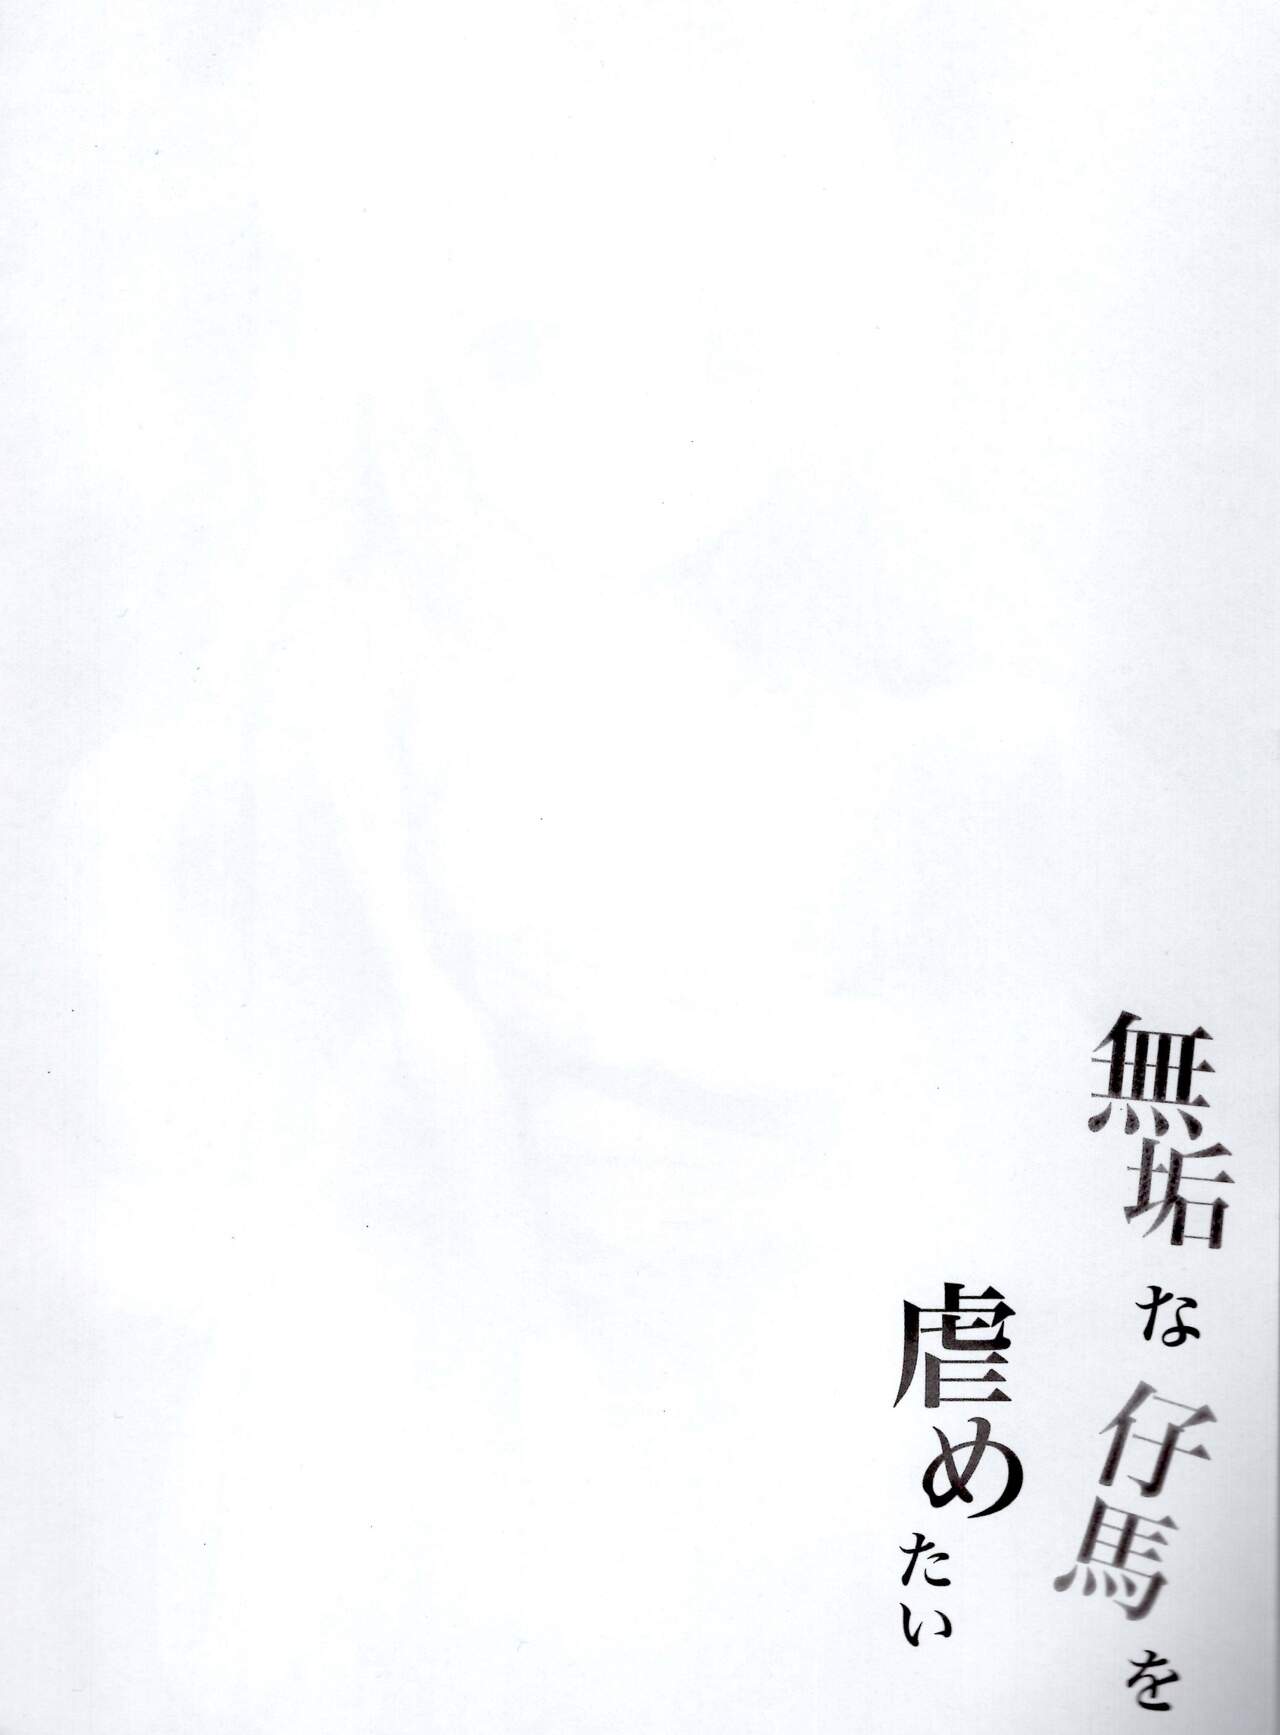 無垢な仔馬を
虐めたい